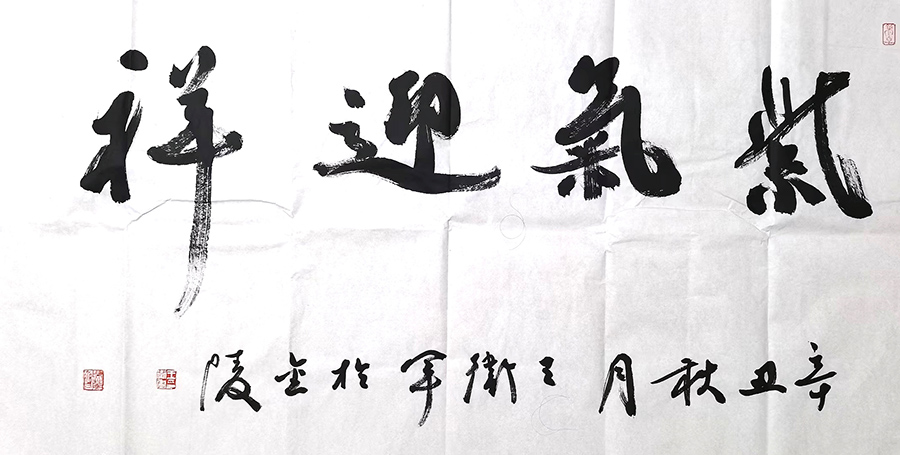 紫氣迎祥
辛丑秋月王衛軍於金陵